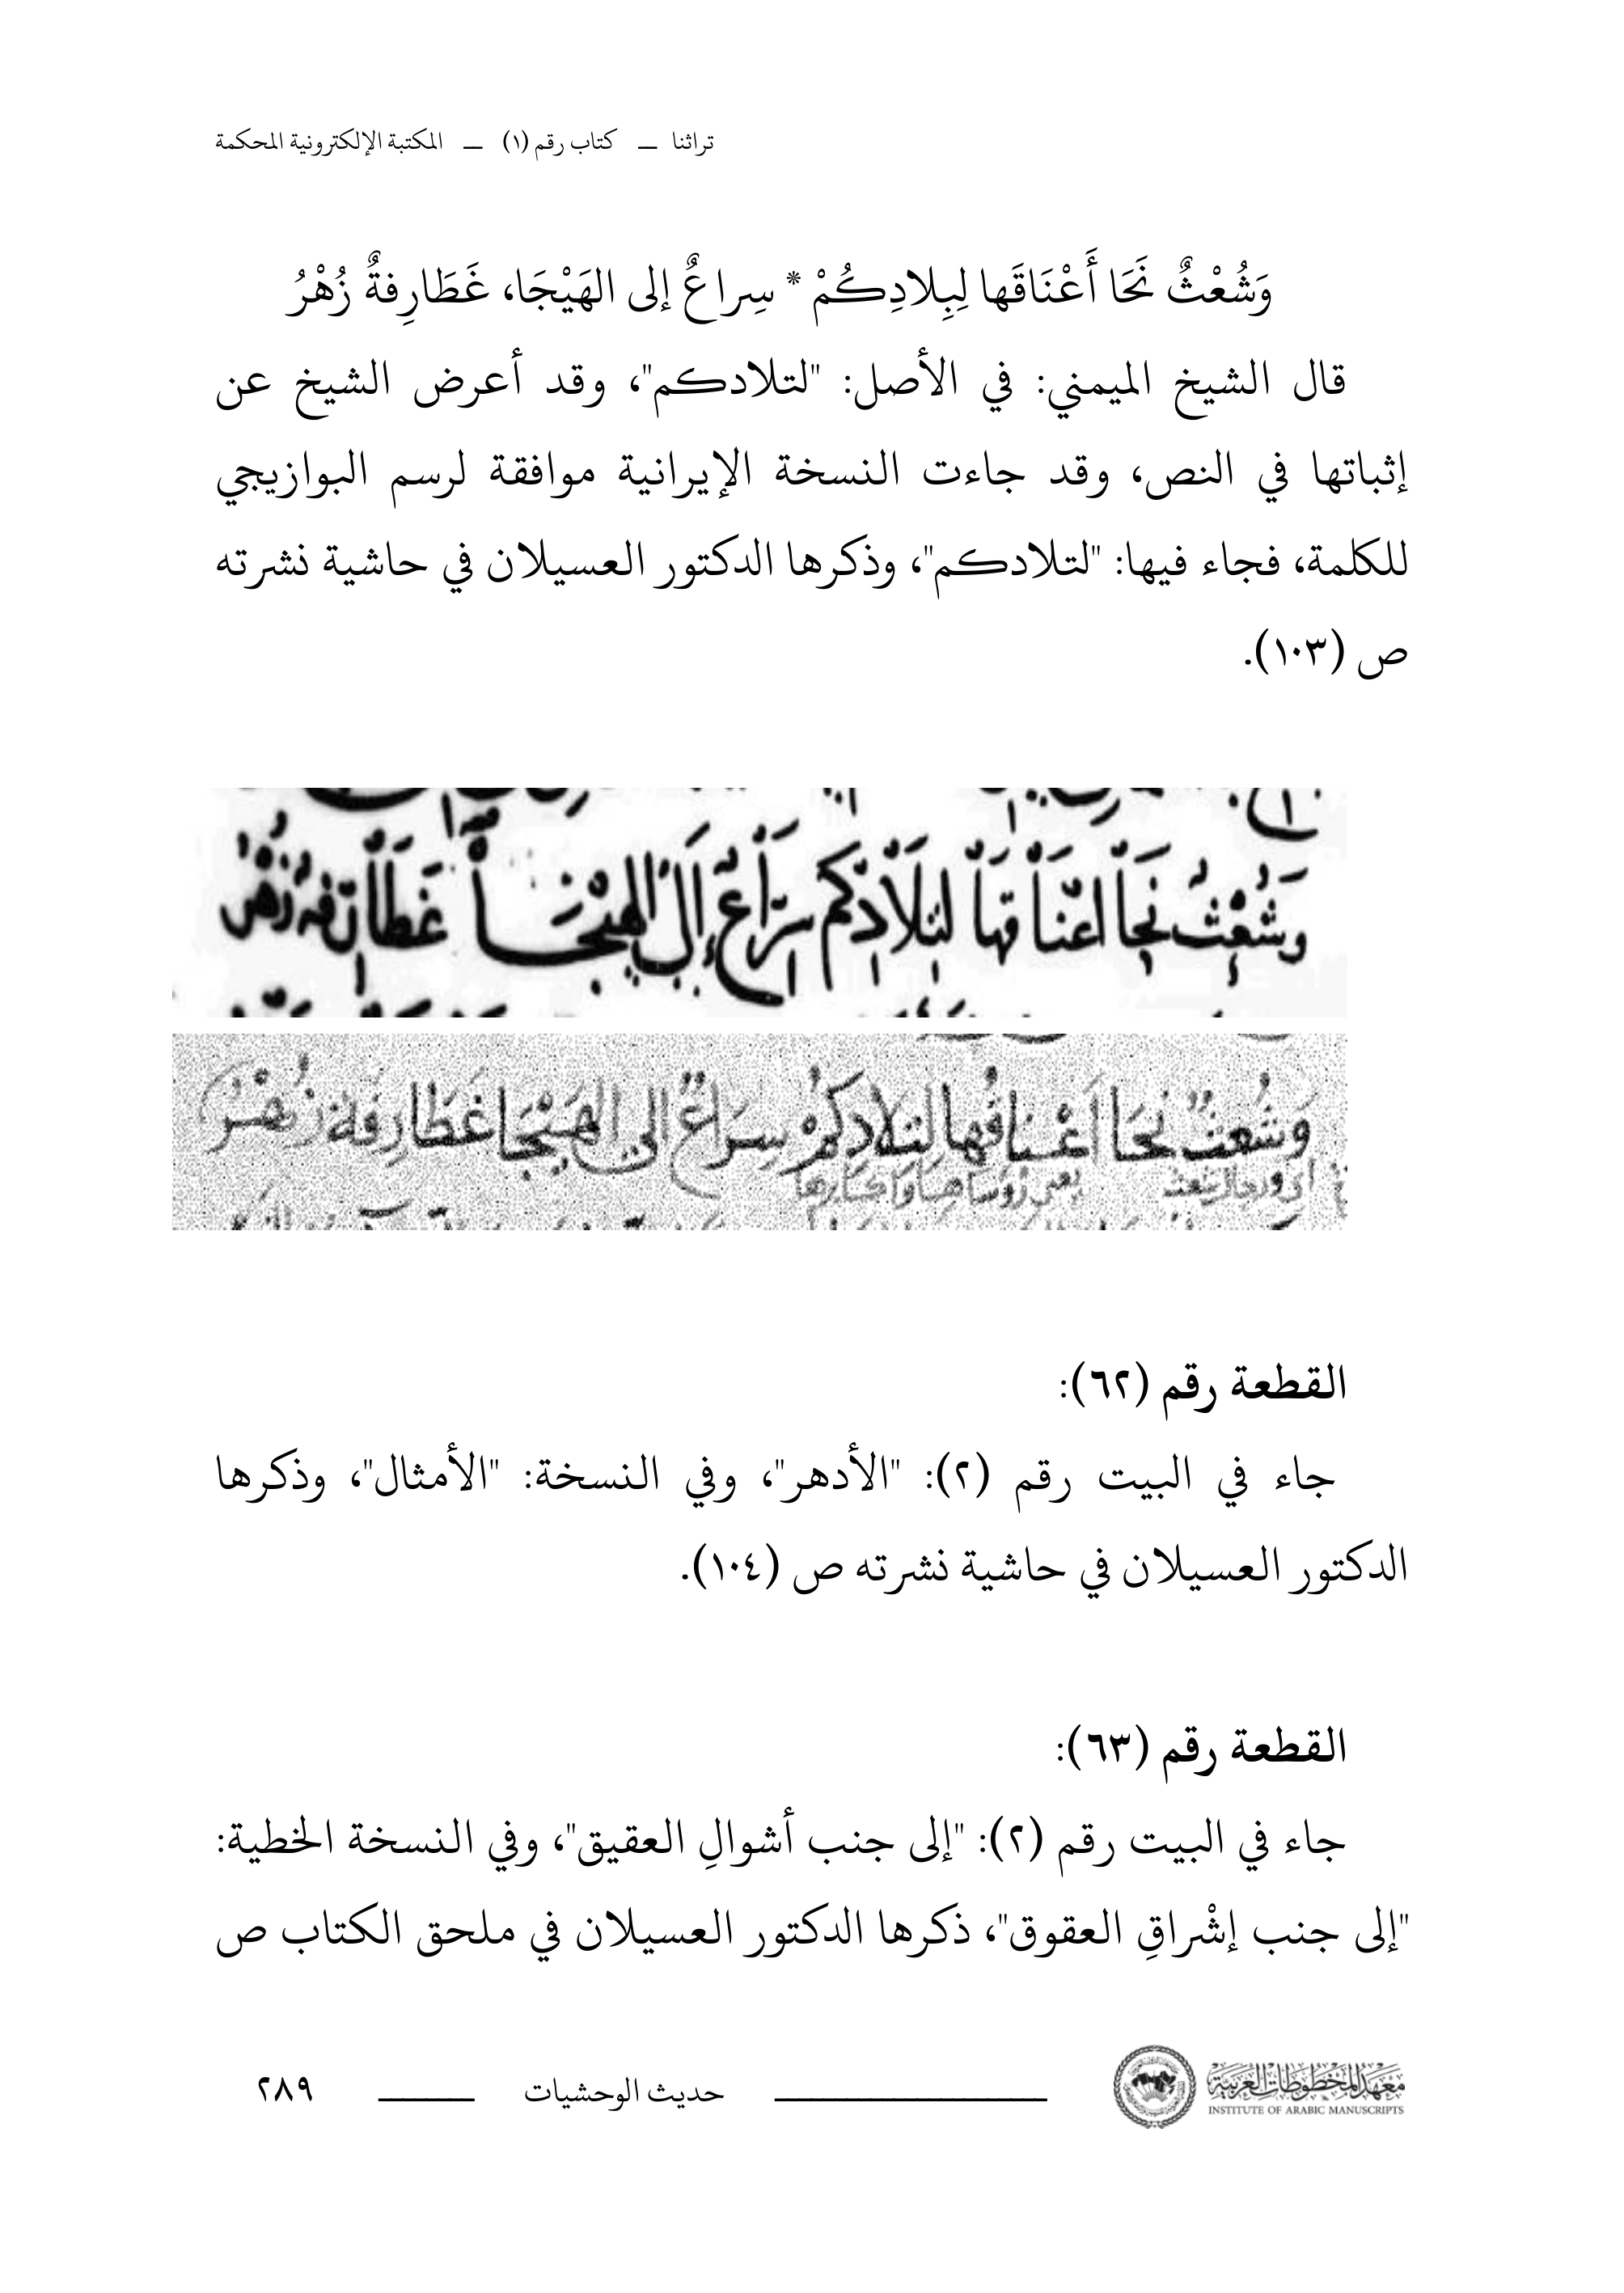 تراثنا — كتاب رقم (١) — المكتبة الإلكترونية المحكمة
وَشُعْثٌ نَحَا أَعْنَاقَها لِبِلادِكُمْ * سِراعٌ إلى الهَيْجَا، غَطَارِفةٌ زُهْرُ
قال الشيخ الميمني: في الأصل: "لتلادكم"، وقد أعرض الشيخ عن
إثباتها في النص، وقد جاءت النسخة الإيرانية موافقة لرسم البوازيجي
للكلمة، فجاء فيها: "لتلادكم"، وذكرها الدكتور العسيلان في حاشية نشرته
ص (١٠٣).
وَشُعْثٌ نَحَا اعْنَاقَهَا لتلادكم سِرَاعٌ إلى الهَيْجَا غَطَارِفة زُهْر
وَشُعثٌ نَحَا اَعْنَاقُها لتلادكُمْ سِرَاعٌ الى الهَيْجا غَطَارِفة زُهْرُ
يعنى رؤساها واكابرها
القطعة رقم (٦٢):
جاء في البيت رقم (٢): "الأدهر"، وفي النسخة: "الأمثال"، وذكرها
الدكتور العسيلان في حاشية نشرته ص (١٠٤).
القطعة رقم (٦٣):
جاء في البيت رقم (٢): "إلى جنب أشوالِ العقيق"، وفي النسخة الخطية:
"إلى جنب إشْراقِ العقوق"، ذكرها الدكتور العسيلان في ملحق الكتاب ص
معهد المخطوطات العربية
INSTITUTE OF ARABIC MANUSCRIPTS
حديث الوحشيات
٢٨٩